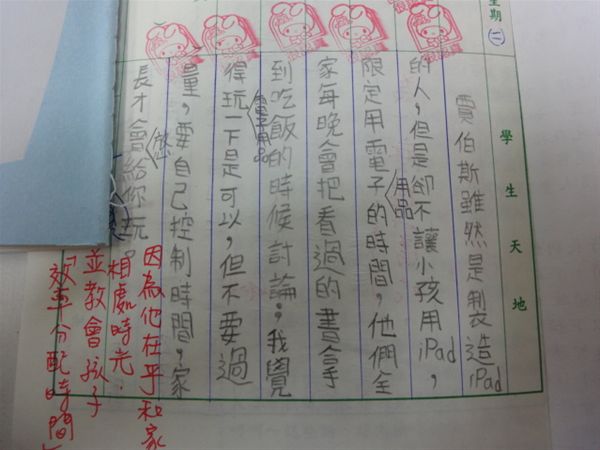 星期(二)
學生天地
賈伯斯雖然是製造iPad
的人，但是卻不讓小孩用iPad，
限定用電子的時間，他們全
用品
家每晚會把看過的書拿
到吃飯的時候討論；我覺
得玩一下是可以，但不要過
電子用品
量，要自己控制時間，家
長才會給你玩。
因為他在乎和家
相處時光，
並教會孩子
「效率分配時間」